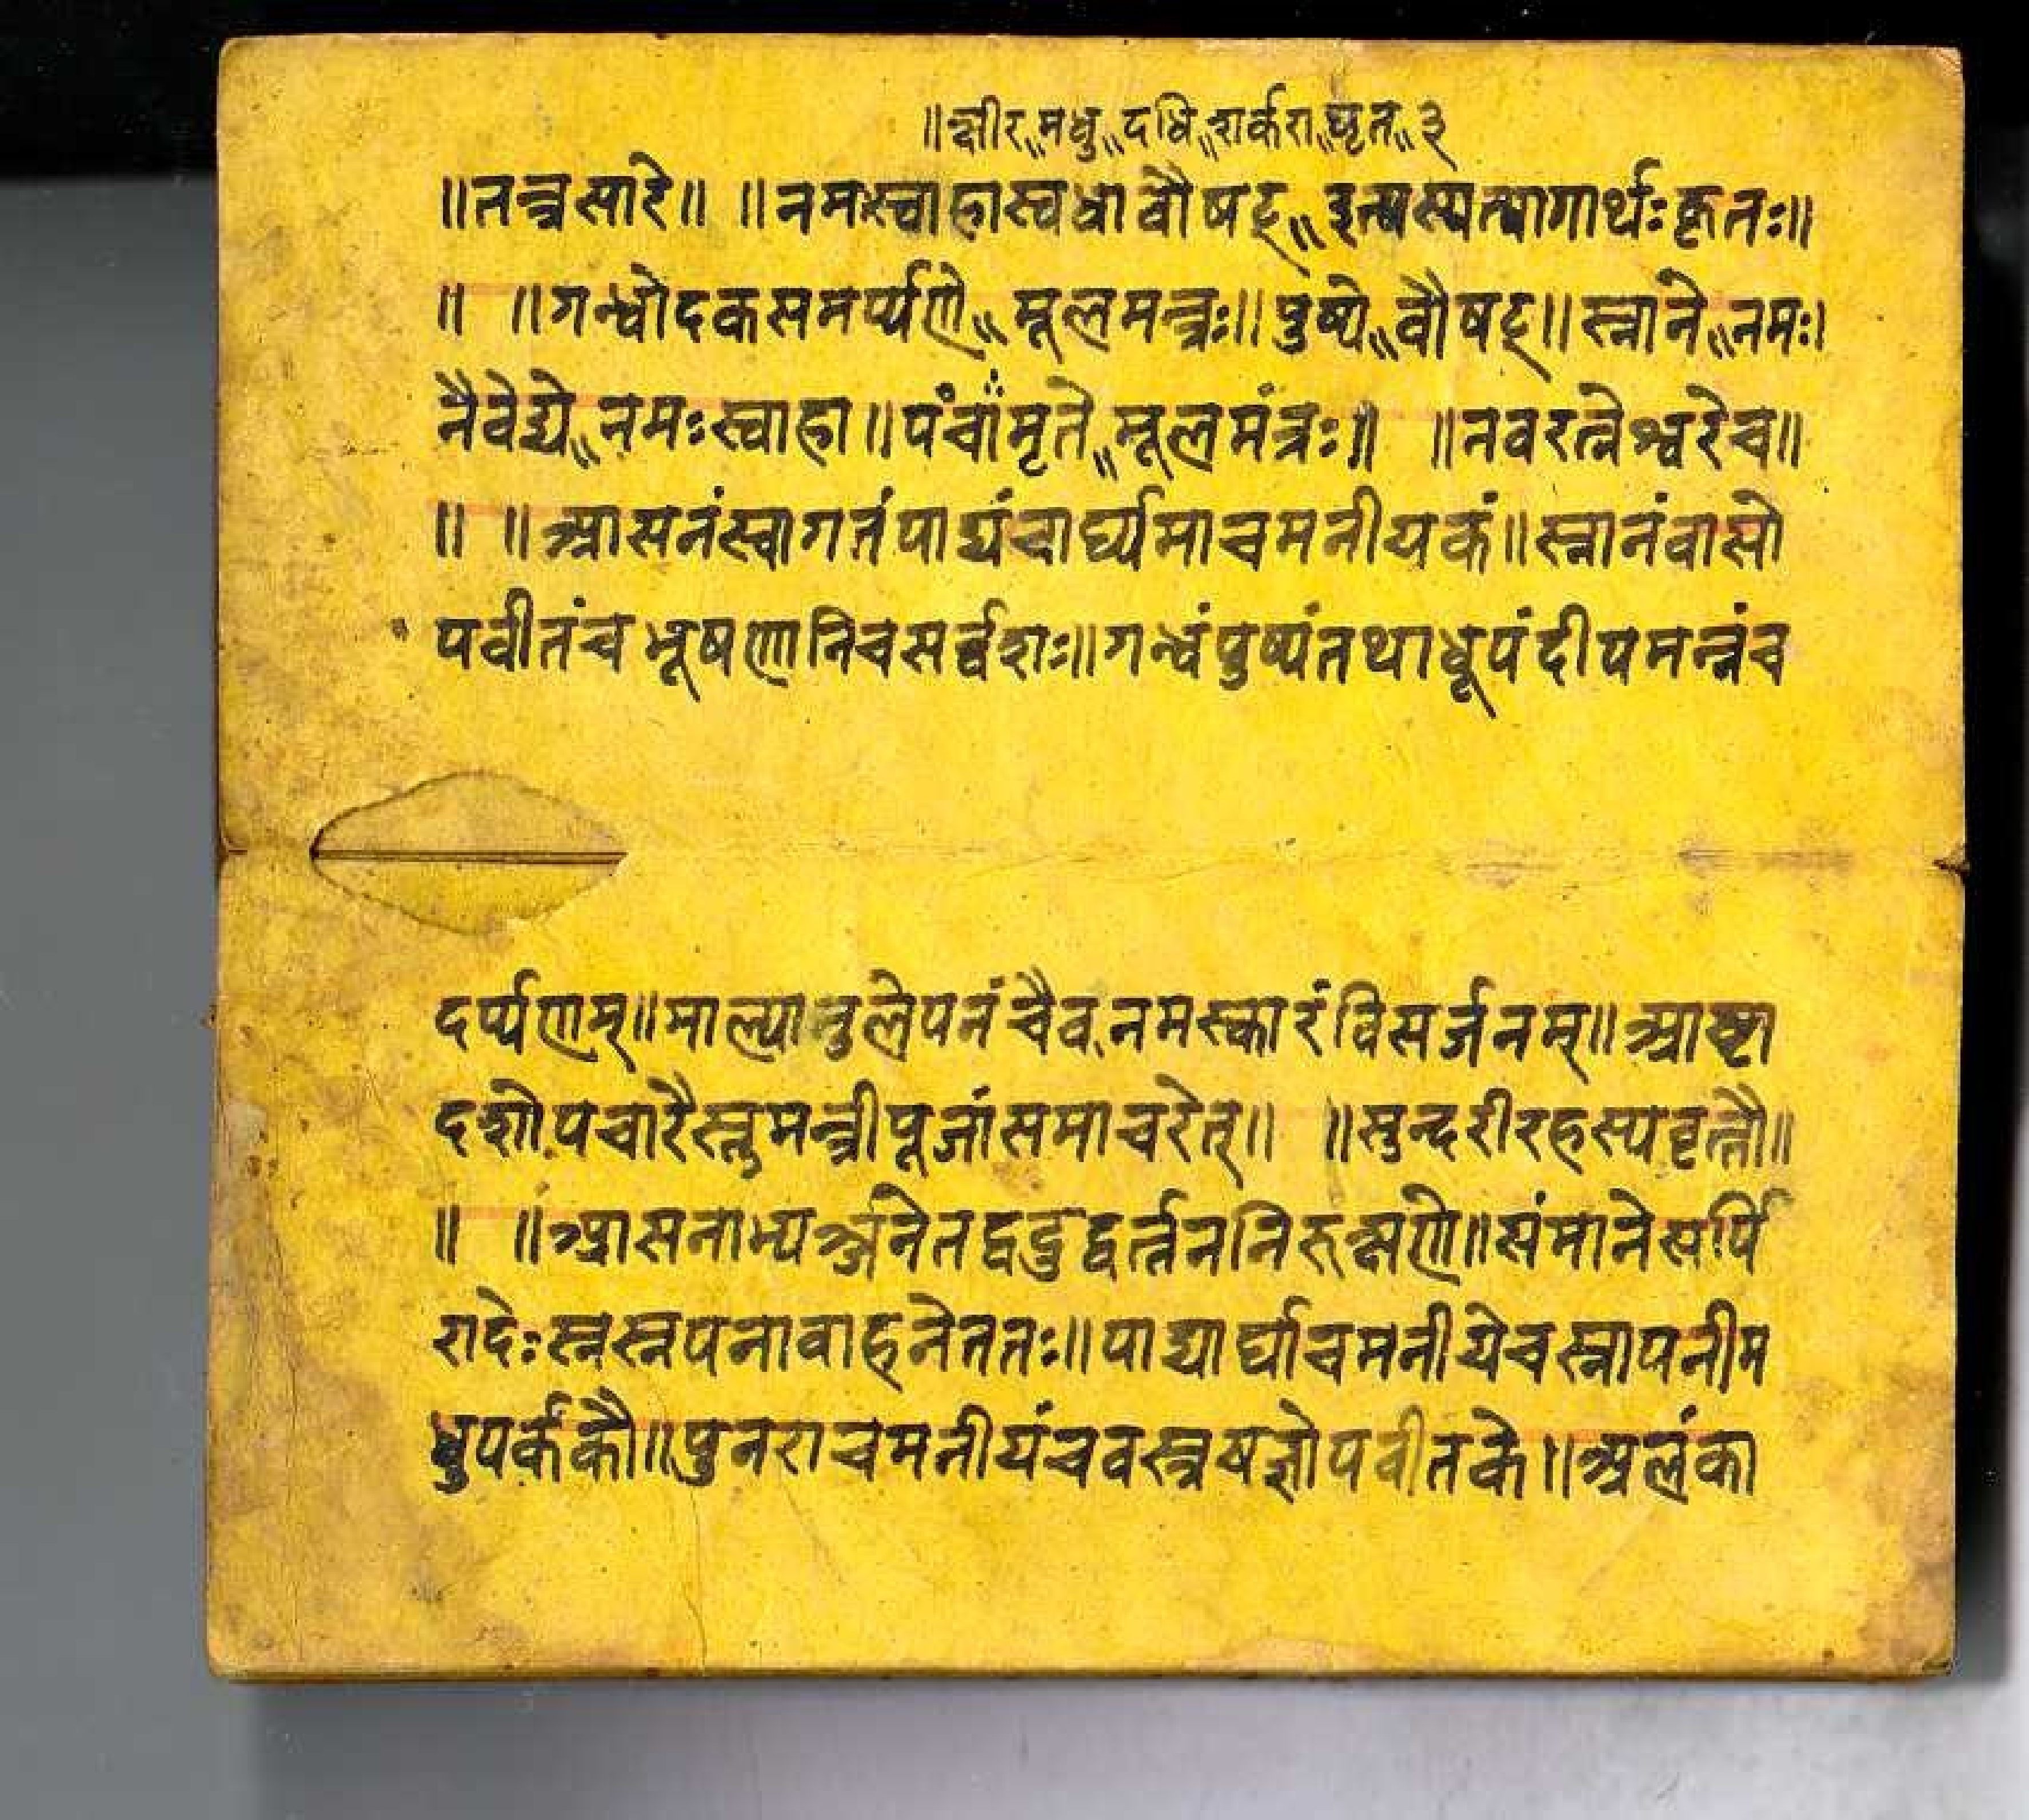 ॥क्षीर॥मधु॥दधि॥शर्करा॥घृत॥३
॥तन्त्रसारे॥ ॥नमःस्वाहास्वधावौषट्॥इत्यस्यत्यागार्थःकृतः॥
॥ ॥गन्धोदकसमर्प्पणे॥मूलमन्त्रः॥पुष्पे॥वौषट्॥स्नाने॥नमः।
नैवेद्ये॥नमःस्वाहा॥पंचांमृते॥मूलमंत्रः॥ ॥नवरत्नेश्वरेच॥
॥ ॥आसनंस्वागतंपाद्यंचार्घ्यमाचमनीयकं॥स्नानंवासो
पवीतंच भूषणानिचसर्व्वशः॥गन्धंपुष्पंतथाधूपंदीपमन्नंच
दर्प्पणम्॥माल्यानुलेपनंचैवनमस्कारंविसर्जनम्॥अाष्टा
दशोपचारैस्तुमन्त्रीपूजांसमाचरेत्॥ ॥सुन्दरीरहस्यवृत्तौ॥
॥ ॥आसनाभ्यञ्जनेतद्वदुद्वर्त्तननिरुक्षणे॥संमार्जनेसर्पि
रादेःस्नस्नपनावाहनेततः॥पाद्यार्घाचमनीयेचस्नापनीम
धुपर्ककौ॥पुनराचमनीयंचवस्त्रयज्ञोपवीतके॥अलंका